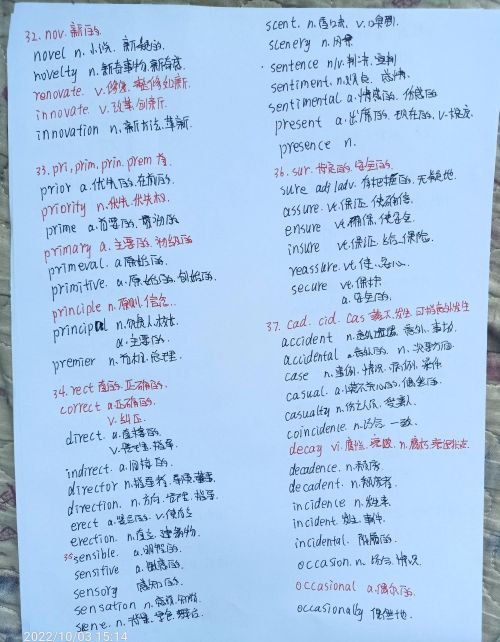 32. nov. 新的
novel n. 小说. 新颖的
novelty n. 新奇事物. 新奇感
renovate v. 修复.
innovate v. 改革. 创新.
innovation n. 新方法. 革新.
33. pri, prim, prin. prem 首
prior a. 优先的. 在前的.
priority n. 优先. 优先权
prime a. 首要的.
primary a. 主要的. 初级的
primeval. a. 原始的.
primitive. a. 原始的. 创始的.
principle n. 原则. 信念.
principal n. 负责人. 校长
a. 主要的.
premier n. 首相. 总理.
34. rect 直的. 正确的.
correct a. 正确的.
v. 纠正
direct. a. 直接的
v. 管理. 指导
indirect. a. 间接的.
director n. 指导者. 导演.
direction. n. 方向. 管理. 指导
erect a. 竖立的. v. 使直立
erection. n. 直立. 建筑物.
35 sensible. a. 明智的
sensitive a. 敏感的
sensory 感知的
sensation n. 感觉.
n. 背景.
scent. n. 气味. v. 嗅到.
scenery n. 风景
sentence n/v. 判决. 宣判
sentiment. n. 感情.
sentimental a. 情感的. 伤感的
present a. 出席的. 现在的. v. 提交
presence n.
36. sur. 肯定的. 安全的.
sure adj/adv. 有把握的. 无疑地.
assure. vt. 保证. 使确信.
ensure vt. 确保. 使安全
insure vt. 保证. 给…保险.
reassure. vt. 使…安心.
secure vt. 保护
a. 安全的.
37. cad. cid. cas
accident n. 意外. 事故.
accidental a. 意外的. n. 次要方面.
case n. 事例. 情况. 病例. 案件
casual. a. 漠不关心的. 偶然的.
casualty n. 伤亡人员. 受害人.
coincidence n. 巧合. 一致.
decay vi. 腐烂. n. 腐朽.
decadence. n. 颓废
decadent. n. 颓废者.
incidence n. 发生率
incident 事件.
incidental. 附属的
occasion. n. 场合. 情况.
occasional a. 偶尔的
occasionally 偶然地.
2022/10/03 15:14